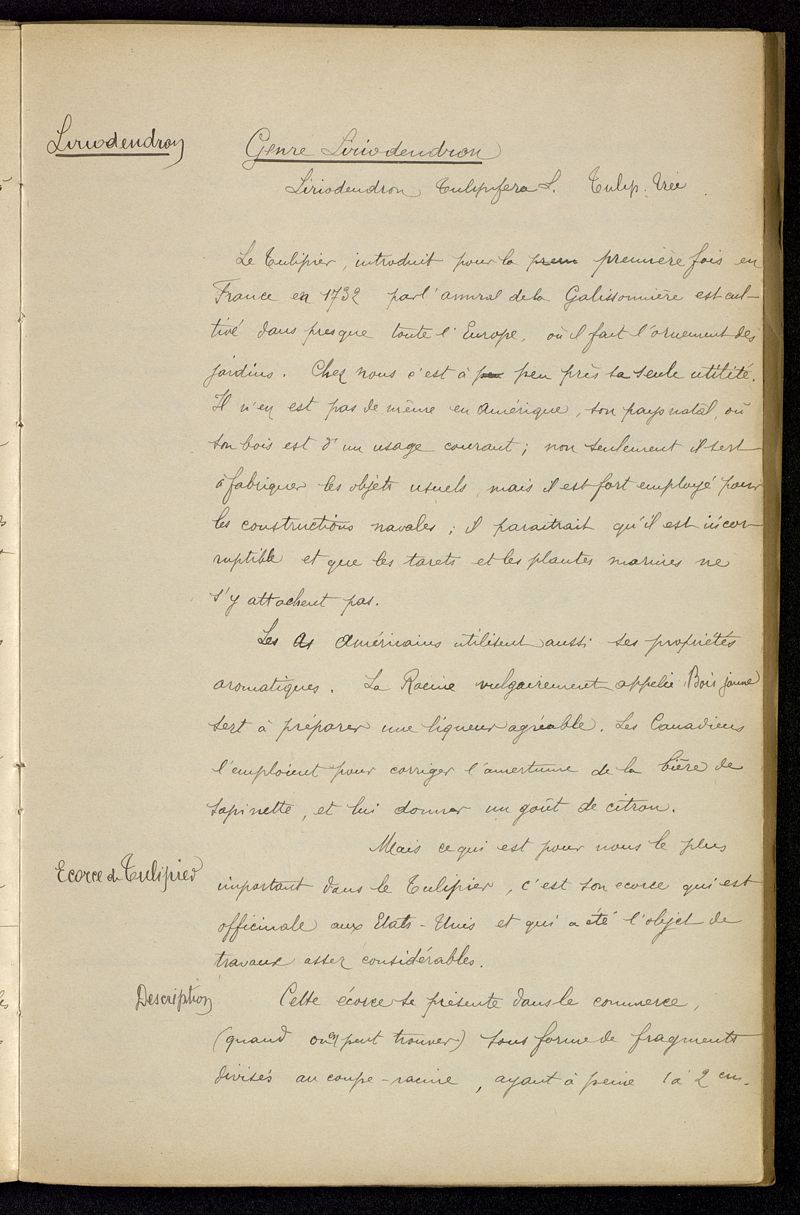 Liriodendron
Genre Liriodendron
Liriodendron tulipifera L. Tulip. Tree.
Le Tulipier, introduit pour la prem première fois en
France en 1732 par l'amiral de la Galissonnière est cul-
tivé dans presque toute l'Europe, où il fait l'ornement des
jardins. Chez nous c'est à peu près sa seule utilité.
Il n'en est pas de même en Amérique, son pays natal, où
son bois est d'un usage courant ; non seulement il sert
à fabriquer les objets usuels, mais il est fort employé pour
les constructions navales ; il paraitrait qu'il est incor-
ruptible et que les tarets et les plantes marines ne
s'y attachent pas.
Les As Américains utilisent aussi ses propriétés
aromatiques. La Racine vulgairement appelée Bois jaune
sert à préparer une liqueur agréable. Les Canadiens
l'emploient pour corriger l'amertume de la bière de
sapinette, et lui donner un goût de citron.
Mais ce qui est pour nous le plus
Ecorce de Tulipier
important dans le Tulipier, c'est son ecorce qui est
officinale aux Etats-Unis et qui a été l'objet de
travaux assez considérables.
Description
Cette écorce se présente dans le commerce,
(quand on peut trouver) sous forme de fragments
divisés au coupe-racine, ayant à peine 1 à 2 cm.